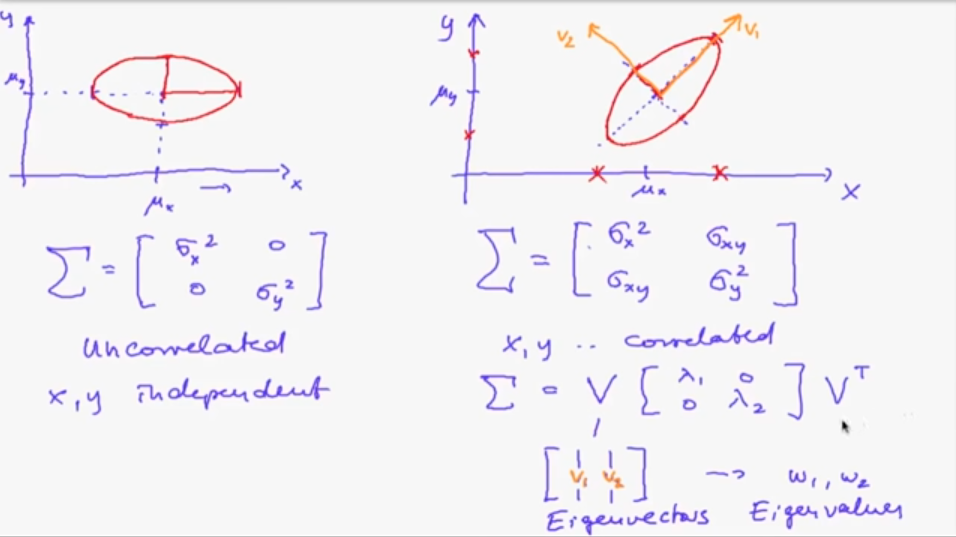 y
μy
x
μx
Σ = [ σx² 0
0 σy² ]
Uncorrelated
x, y independent
y
v2
v1
μy
μx
x
Σ = [ σx² σxy
σxy σy² ]
x, y .. correlated
Σ = V [ λ1 0
0 λ2 ] Vᵀ
[ v1 v2 ] → w1, w2
Eigenvectors Eigenvalues